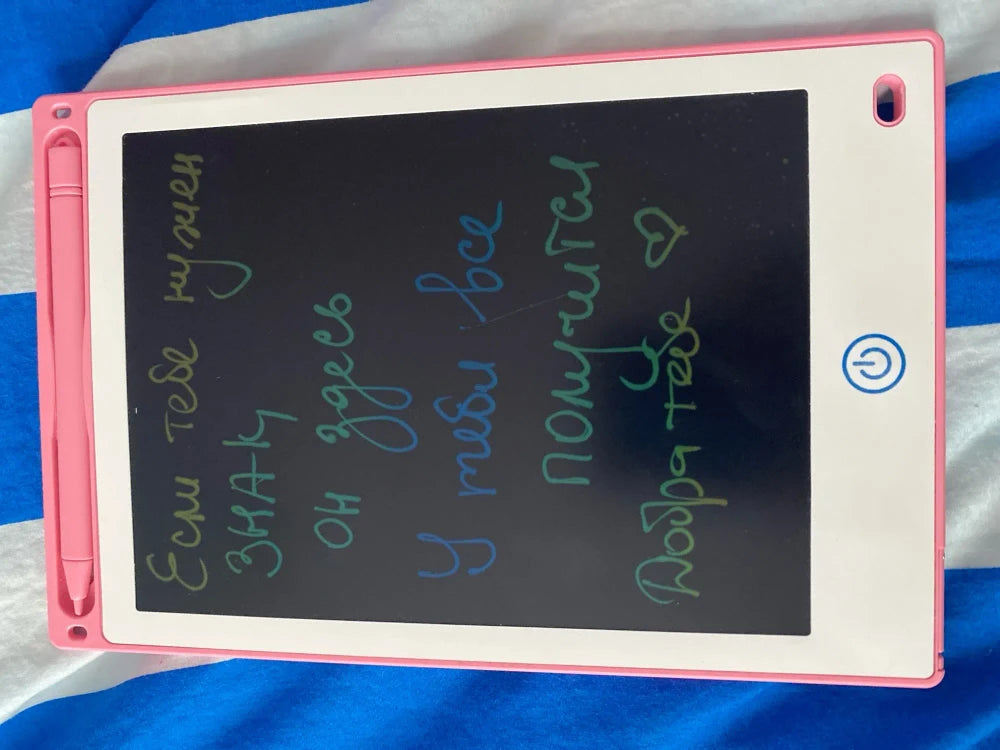 Если тебе нужен
знак
он здесь
У тебя все
получится
Добра тебе ♡